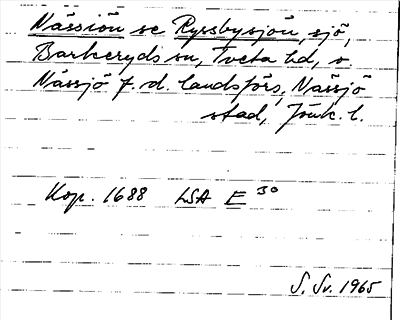 Nässiön se Ryssbysjön, sjö,
Barkeryds sn, Tveta hd, o.
Nässjö f.d. landsförs., Nässjö
stad, Jönk. l.
Kop. 1688 LSA E 30
S. Sv. 1965